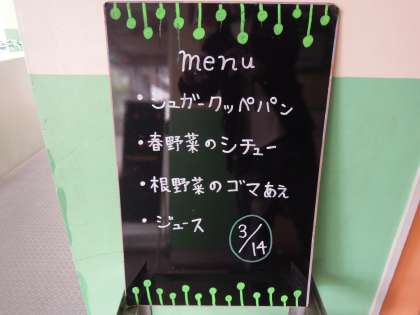 menu
・シュガークッペパン
・春野菜のシチュー
・根野菜のゴマあえ
・ジュース
3/14